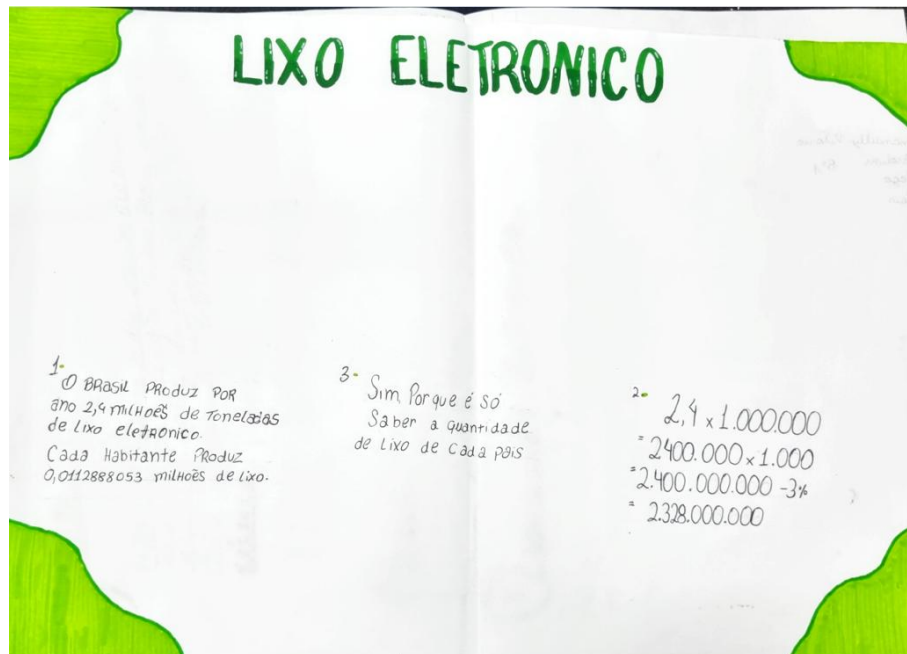 LIXO ELETRONICO
1-
O BRASIL PRODUZ POR
ano 2,4 milHoẽs de Toneladas
de Lixo eletRonico.
Cada Habitante Produz
0,0112888053 milHoẽs de Lixo.
3-
Sim Porque é só
Saber a quantidade
de Lixo de Cada País
2-
2,4 x 1.000.000
= 2400.000 x 1.000
= 2.400.000.000 -3%
= 2.328.000.000